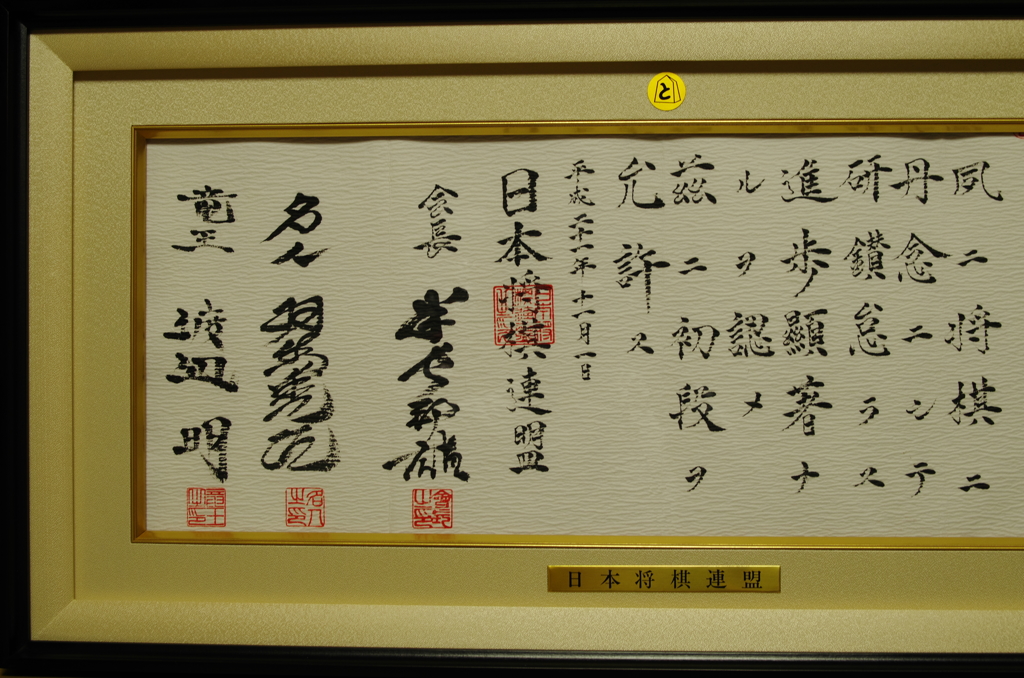 と
夙ニ将棋ニ
丹念ニシテ
研鑚怠ラス
進歩顯著ナ
ルヲ認メ
茲ニ初段ヲ
允許ス
平成二十一年十一月一日
日本将棋連盟
会長 米長邦雄
會長之印
名人 羽生善治
名人之印
竜王 渡辺明
日本将棋連盟